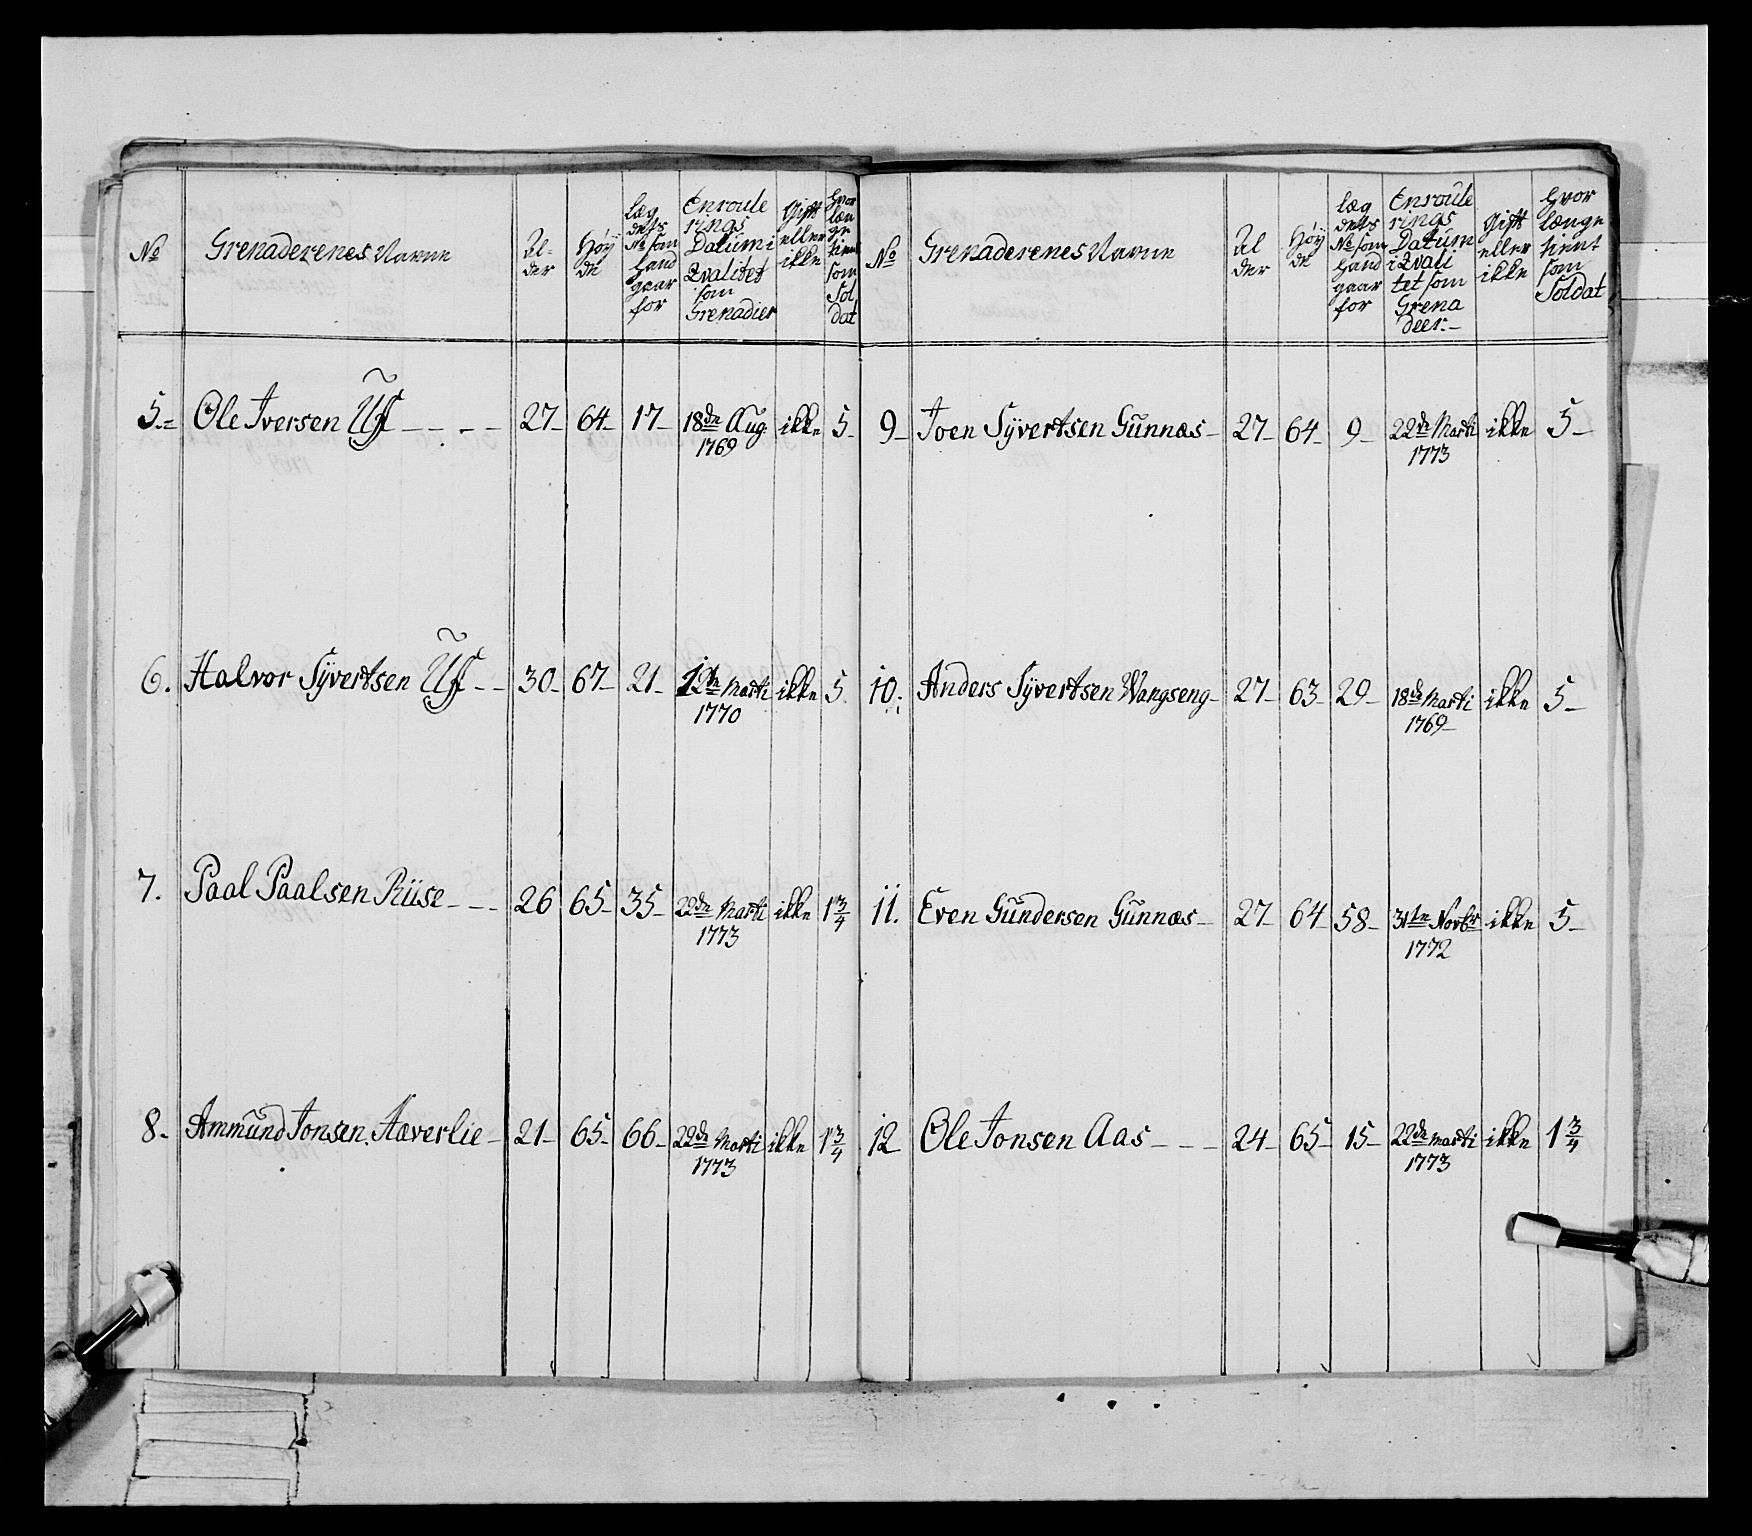 No
Grenaderenes Navne
Al-
der
Høÿ
de
læg
dets
No som
Hand
gaar
for
Enroule
rings
Datum i
Qvalitet
som
Grenadier
Gift
eller
ikke
Hvor
læn
ge
tient
som
Sol
dat
5. Ole Iversen Uf 27 64 17 18de Aug ikke 5
1769
6. Halvor Sÿvertsen Uf 30 67 21 12te Marti ikke 5
1770
7. Paal Paalsen Riise 26 65 35 22de Marti ikke 1 3/4
1773
8. Ammund Jonsen Haverlie 21 65 66 22de Marti ikke 1 3/4
1773
No
Grenaderenes Navne
Al
der
Høÿ
de
læg
dets
No som
Hand
gaar
for
Enroule
rings
Datum
i Qvali
tet som
Grena
deer
Gift
eller
ikke
Hvor
længe
tient
som
Soldat
9 Joen Sÿvertsen Gunnæs 27 64 9 22de Marti ikke 5
1773
10. Anders Sÿvertsen Wangseng 27 63 29 18de Marti ikke 5
1769
11. Even Gundersen Gunnæs 27 64 58 31te Novbr ikke 5
1772
12 Ole Jonsen Aas 24 65 15 22de marti ikke 1 3/4
1773